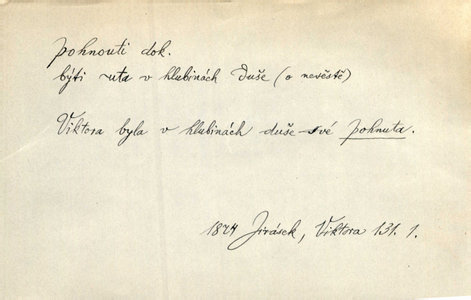 pohnouti dok.
býti uta v hlubinách duše (o nevěstě)
Viktora byla v hlubinách duše své pohnuta.
1874 Jirásek, Viktora 131. 1.